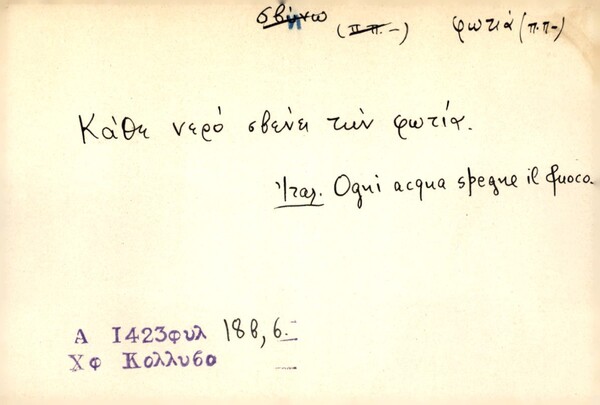 σβήνω (π.π.-) φωτιά (π.π-)
Κάθε νερό σβένει την φωτία.
Ἰταλ. Ogni acqua spegne il fuoco.
Α 1423φυλ 188, 6.
Χφ Κολλυβο